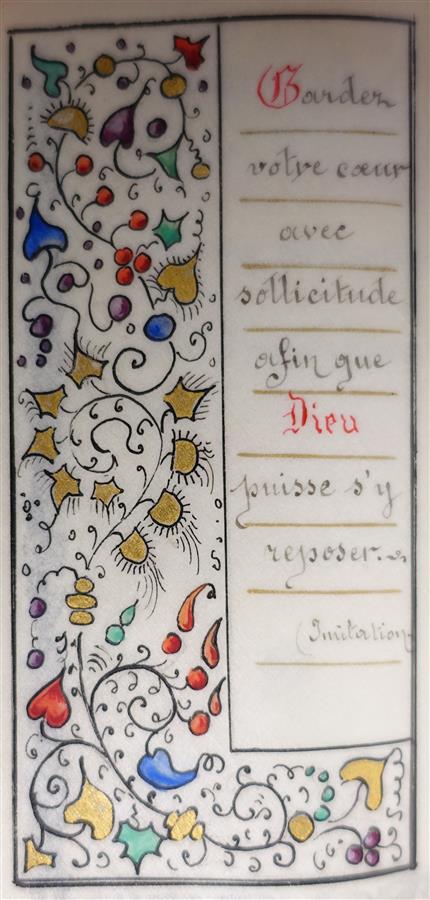 Gardez
votre cœur
avec
sollicitude
afin que
Dieu
puisse s'y
reposer.
(Imitation)